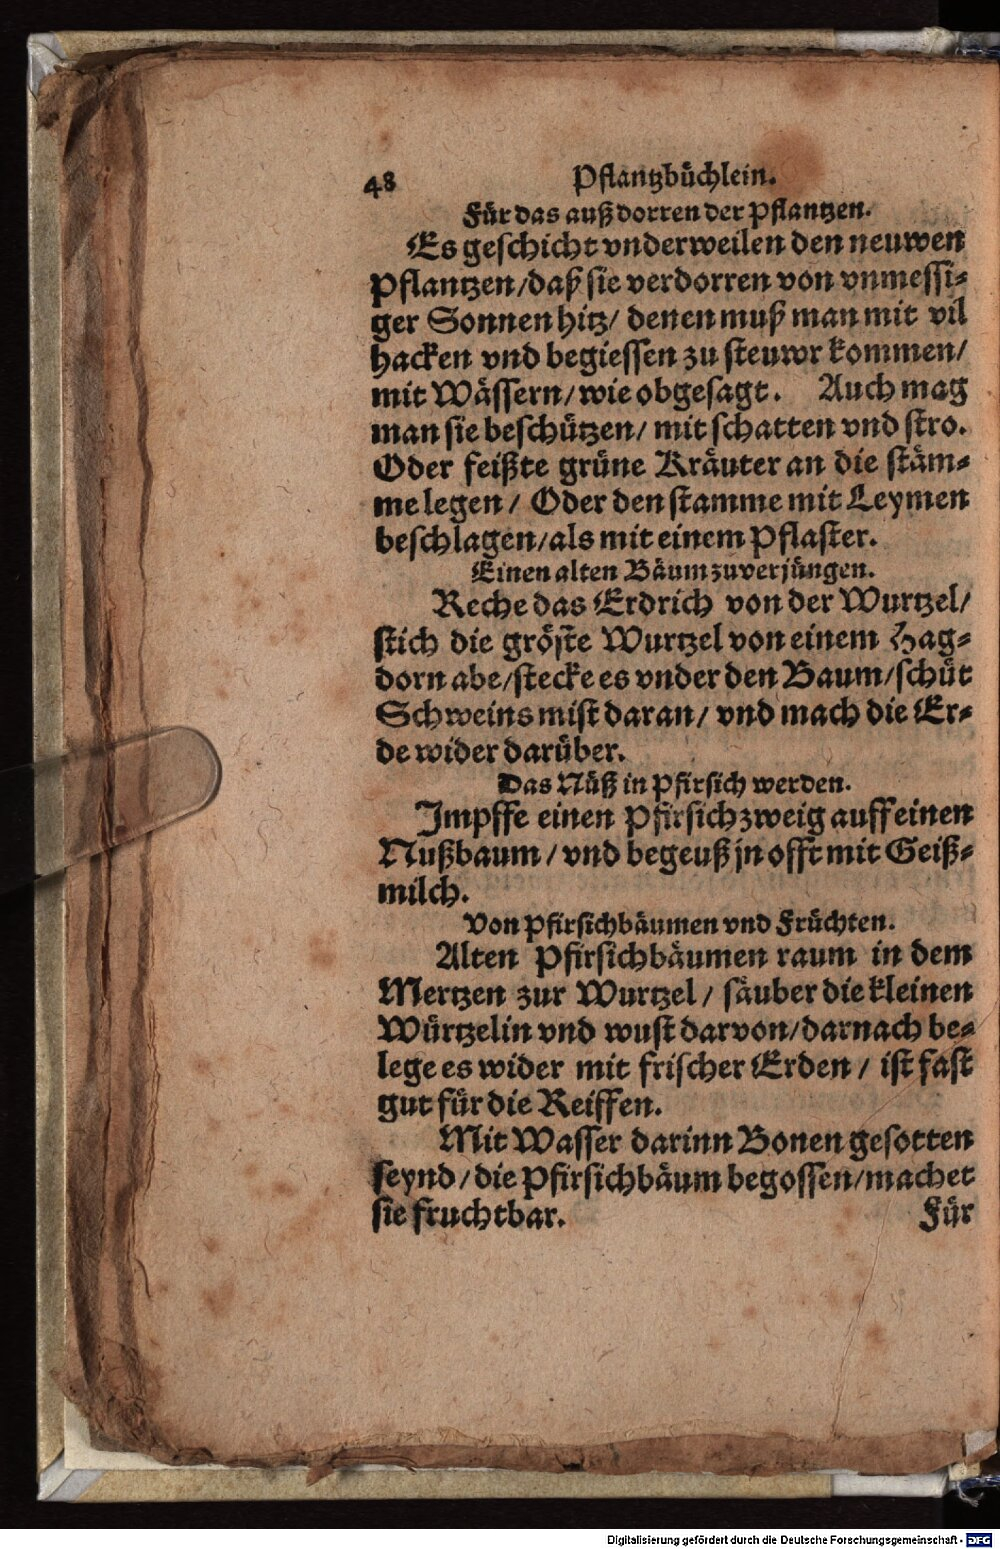 48 Pflantzbüchlein.
Für das außdorren der Pflantzen.
Es geschicht vnderweilen den neuwen
Pflantzen/daß sie verdorren von vnmessi-
ger Sonnen hitz/ denen muß man mit vil
hacken vnd begiessen zu steuwr kommen/
mit Wässern/wie obgesagt. Auch mag
man sie beschützen/ mit schatten vnd stro.
Oder feißte grüne Kräuter an die stäm-
me legen/ Oder den stamme mit Leymen
beschlagen/als mit einem Pflaster.
Einen alten Bäum zuverjüngen.
Reche das Erdrich von der Wurtzel/
stich die gröste Wurtzel von einem Hag-
dorn abe/stecke es vnder den Baum/schüt
Schweins mist daran/ vnd mach die Er-
de wider darüber.
Das Nüß in Pfirsich werden.
Impffe einen Pfirsichzweig auff einen
Nußbaum/ vnd begeuß jn offt mit Geiß-
milch.
Von Pfirsichbäumen vnd Früchten.
Alten Pfirsichbäumen raum in dem
Mertzen zur Wurtzel/ säuber die kleinen
Würtzelin vnd wust darvon/darnach be-
lege es wider mit frischer Erden/ ist fast
gut für die Reiffen.
Mit Wasser darinn Bonen gesotten
seynd/die Pfirsichbäum begossen/machet
sie fruchtbar. Für
Digitalisierung gefördert durch die Deutsche Forschungsgemeinschaft - DFG